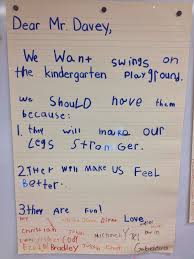 Dear Mr. Davey,
We Want swings on
the kindergarten Playground.
we Should have them
because:
1. they will make our
Legs Stronger.
2. They will make us FeeL
Better.
3. They Are Fun!
Love,
Bradley